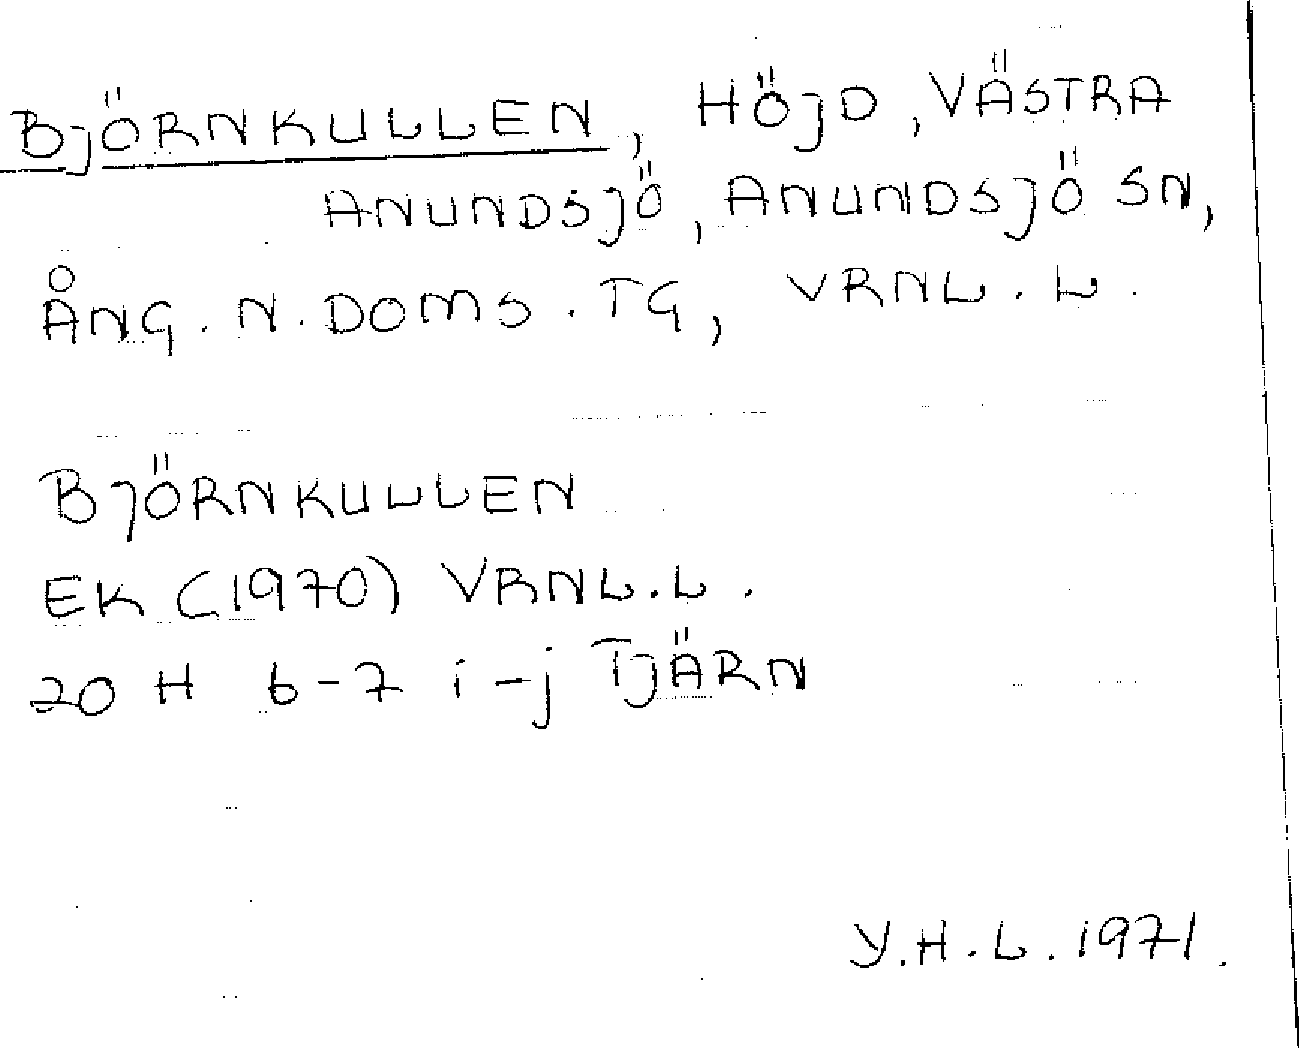 BJÖRNKULLEN, HÖJD, VÄSTRA
ANUNDSJÖ, ANUNDSJÖ SN,
ÅNG. N. DOMS. TG, VRNL. L.
BJÖRNKULLEN
EK (1970) VRNL. L.
20 H 6-7 i-j TJÄRN
Y. H. L. 1971.